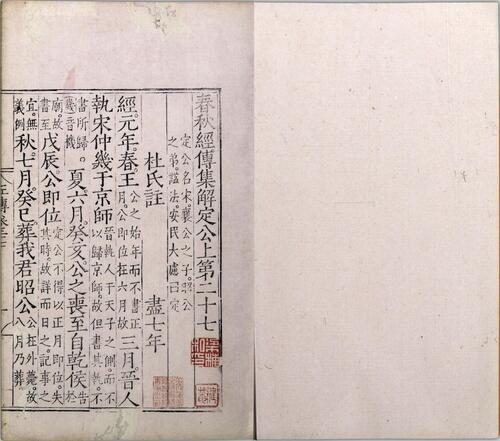 春秋經傳集解定公上第二十七
定公名宋襄公之子昭公
之弟謚法安民大慮曰定
杜氏註 盡七年
經元年春王公之始年而不書正月公即位在六月故三月晉人
執宋仲幾于京師晉執人于天子之側而不以歸京師故但書其執不
書所歸幾音機。夏六月癸亥公之喪至自乾侯告於
廟故書至戊辰公即位定公不得以正月即位失其時故詳而日之記事之
宜無義例秋七月癸巳葬我君昭公公在外薨故八月乃葬